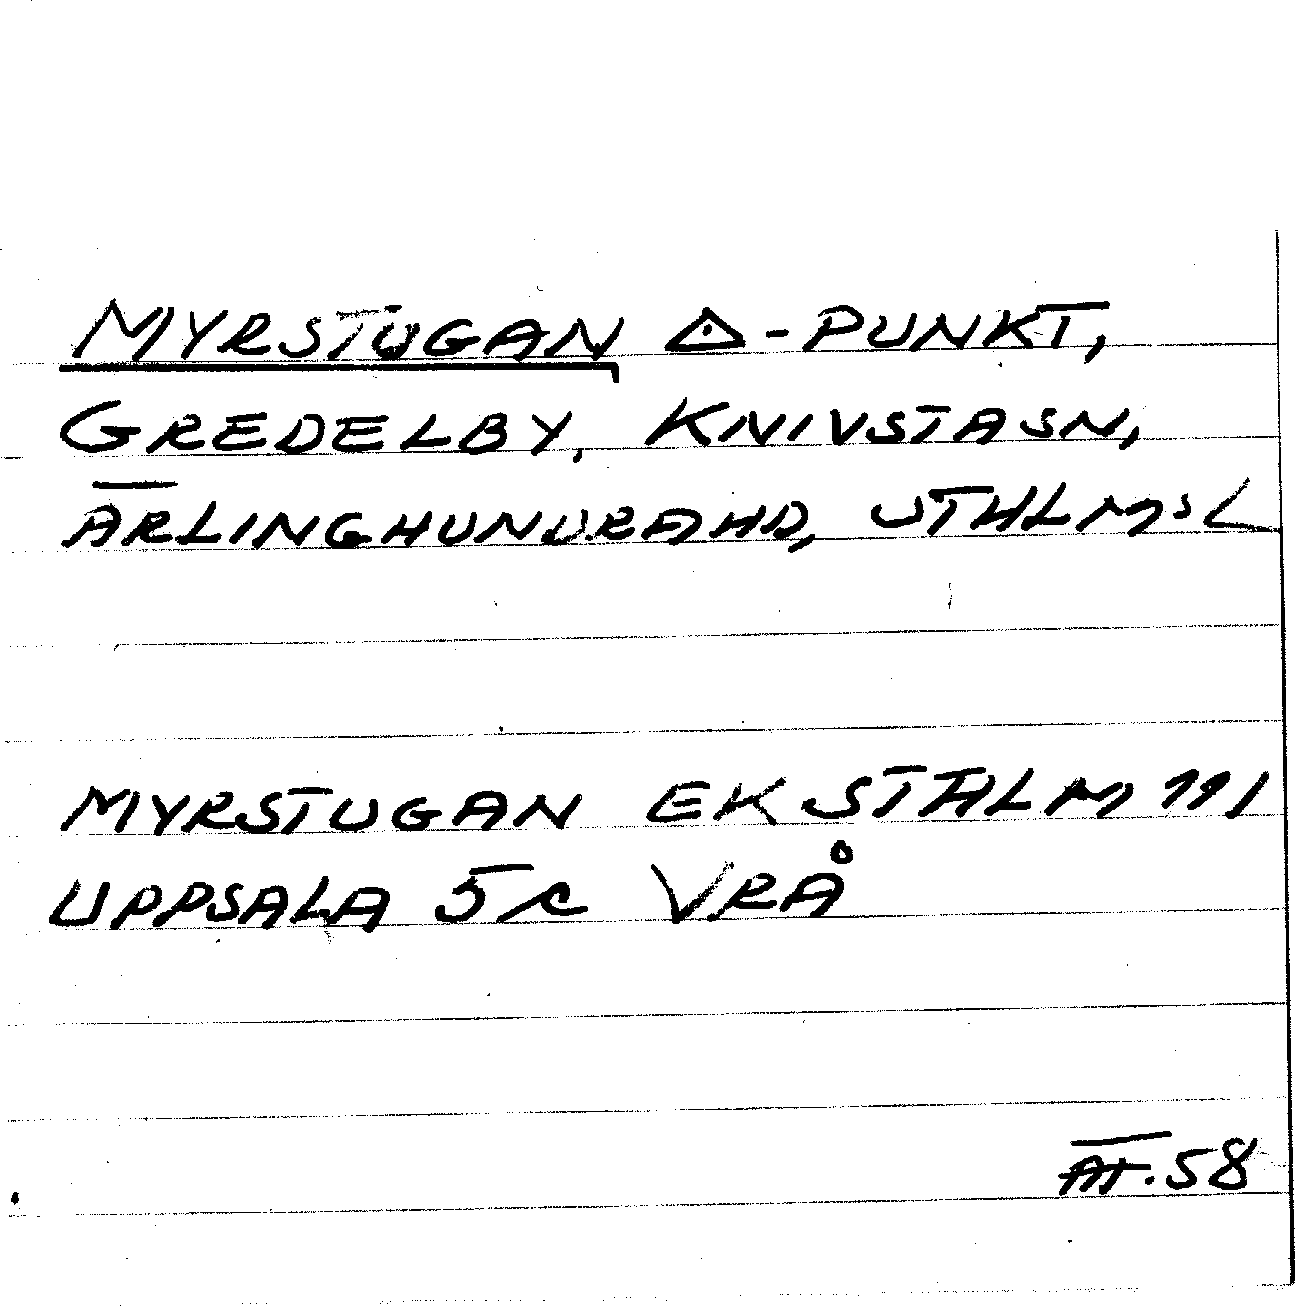 MYRSTUGAN △-PUNKT,
GREDELBY, KNIVSTASN,
ÄRLINGHUNDRAHD, STHLM:S L
MYRSTUGAN EK STHLM 191
UPPSALA 5 c VRÅ
AT.58